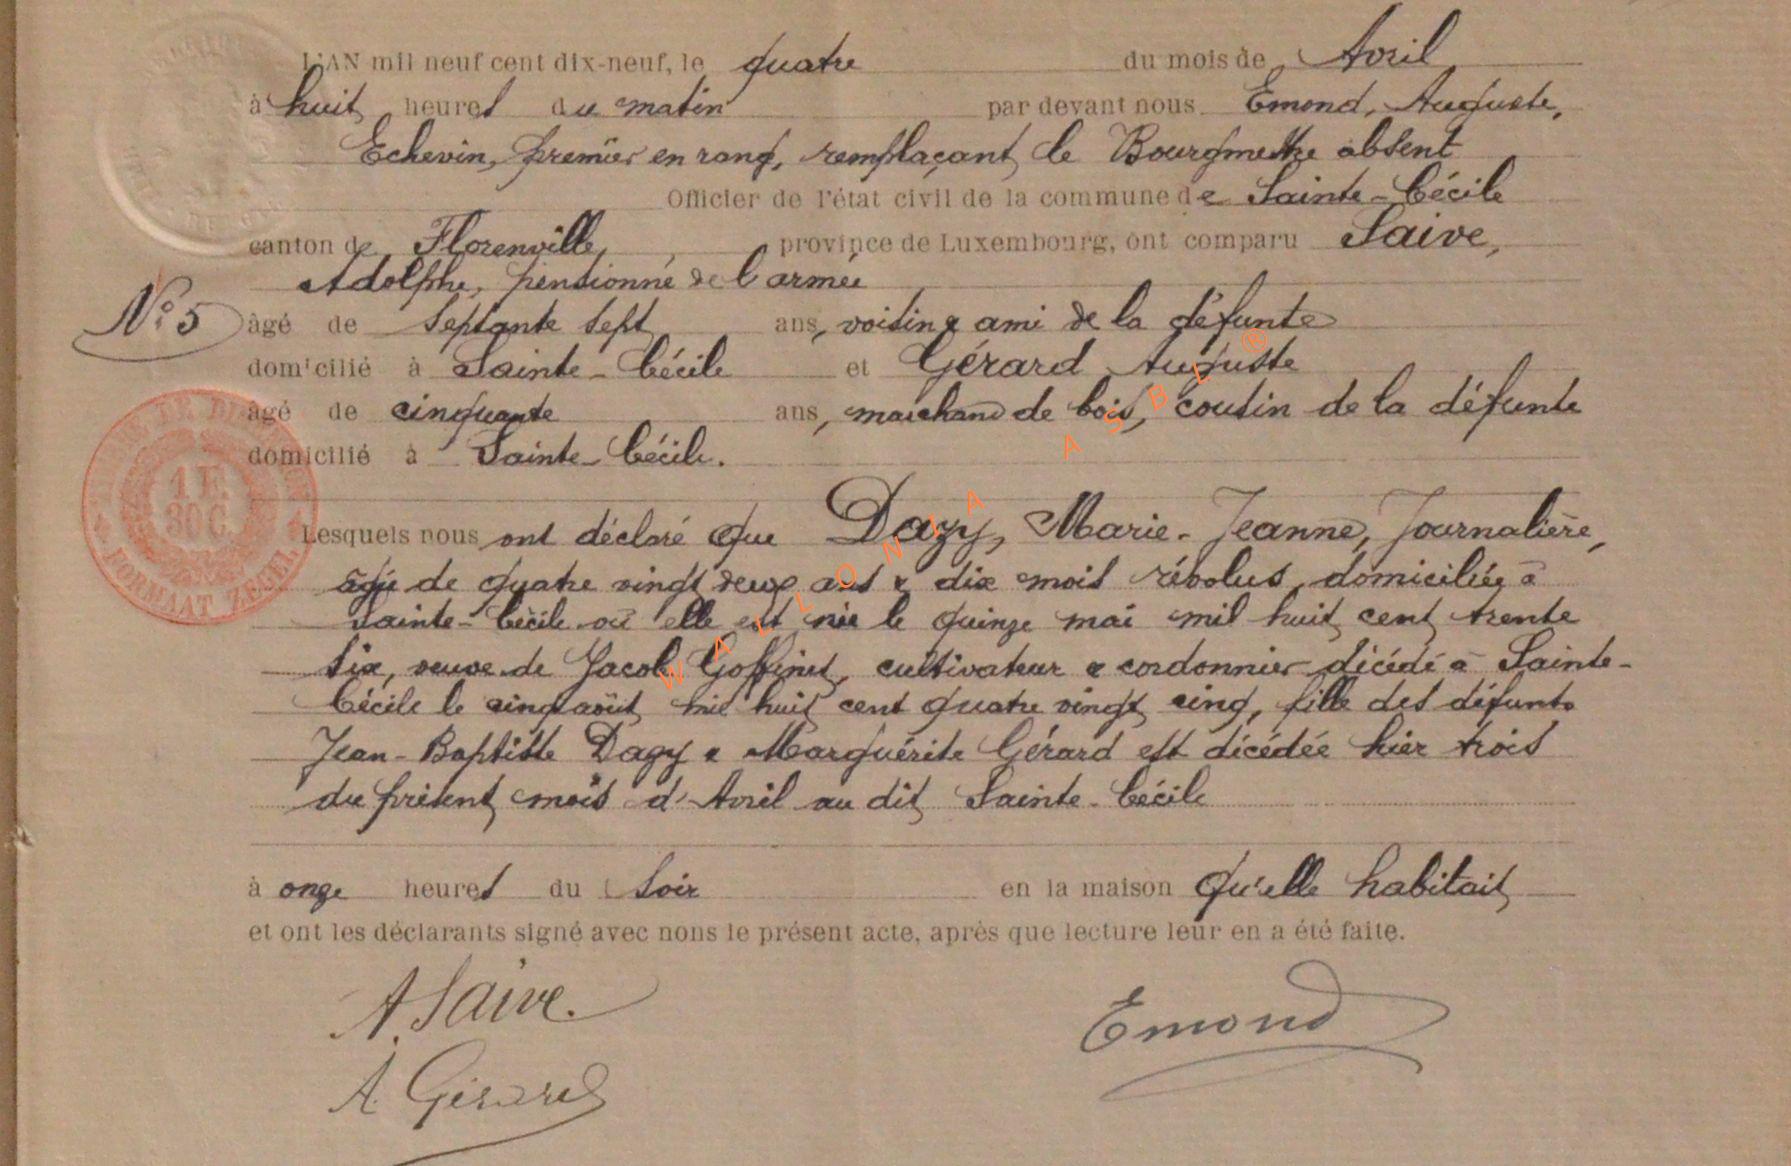 L'AN mil neuf cent dix-neuf, le quatre du mois de Avril
à huit heures du matin par devant nous Emond, Auguste,
Echevin, premier en rang, remplaçant le Bourgmestre absent
Officier de l'état civil de la commune de Sainte-Cécile
canton de Florenville, province de Luxembourg, ont comparu Saive,
Adolphe, pensionné de l'armée
N° 5 âgé de septante sept ans, voisin & ami de la défunte
domicilié à Sainte-Cécile et Gérard Auguste
âgé de cinquante ans, marchand de bois, cousin de la défunte
domicilié à Sainte-Cécile.
1 F.
30 C.
FORMAAT ZEGEL
Lesquels nous ont déclaré que Dazy, Marie-Jeanne, Journalière,
âgée de quatre vingt deux ans & dix mois révolus, domiciliée à
Sainte-Cécile où elle est née le quinze mai mil huit cent trente
six, veuve de Jacob Goffinet, cultivateur & cordonnier décédé à Sainte-
Cécile le cinq août mil huit cent quatre vingt cinq, fille des défunts
Jean-Baptiste Dazy & Marguérite Gérard est décédée hier trois
du présent mois d'Avril au dit Sainte-Cécile
à onze heures du soir en la maison qu'elle habitait
et ont les déclarants signé avec nous le présent acte, après que lecture leur en a été faite.
A. Saive.
Emond
A. Gérard
WALLONIA ASBL ®